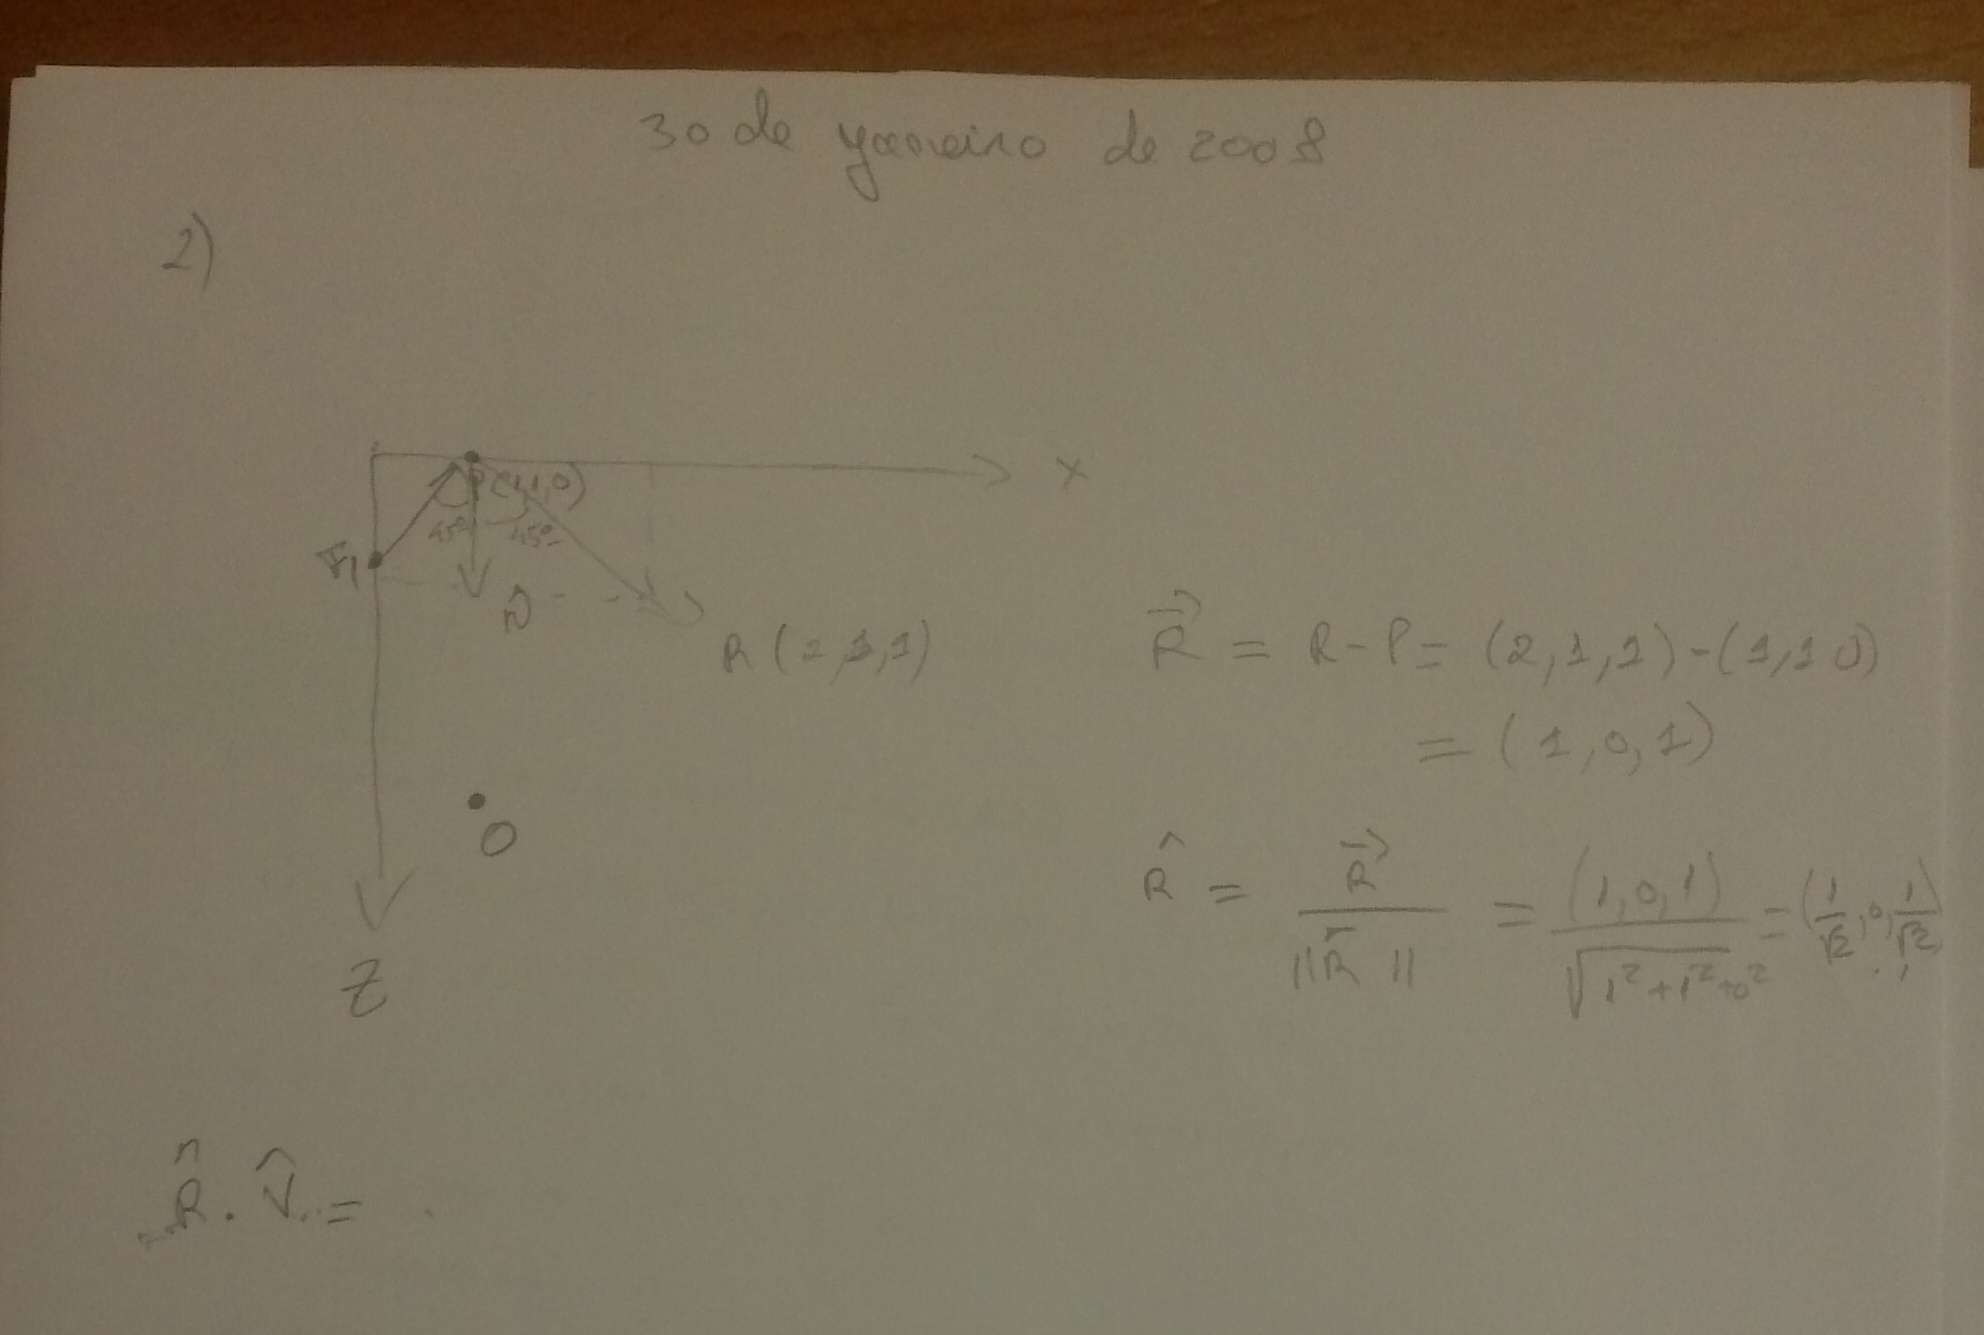 30 de janeiro de 2008
2)
x
P(1,1,0)
45º 45º
F1
n̂
R (2,1,1)
O
Z
R⃗ = R - P = (2,1,1) - (1,1 0)
= (1,0,1)
R̂ = R⃗ / ||R⃗|| = (1,0,1) / √(1²+1²+0²) = (1/√2, 0, 1/√2)
R̂ . V̂ =